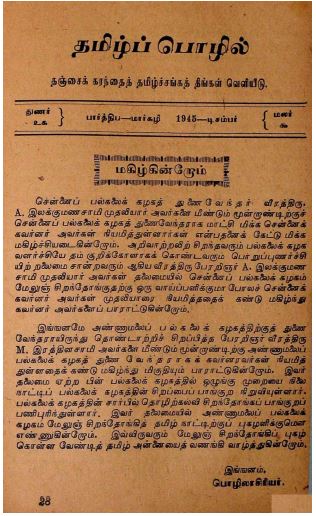 தமிழ்ப் பொழில்
தஞ்சைக் கரந்தைத் தமிழ்ச்சங்கத் திங்கள் வெளியீடு.
துணர் } பார்த்திப—மார்கழி 1945—டிசம்பர் { மலர்
உக
மகிழ்கின்றோம்
சென்னைப் பல்கலைக் கழகத் துணைவேந்தர் வீரத்திரு.
A. இலக்குமணசாமி முதலியார் அவர்களை மீண்டும் மூன்றாண்டிற்குச்
சென்னைப் பல்கலைக் கழகத் துணைவேந்தராக மாட்சி மிக்க சென்னைக்
கவர்னர் அவர்கள் நியமித்துள்ளார்கள் என்பதனைக் கேட்டு மிக்க
மகிழ்ச்சியடைகின்றோம். அறிவாற்றலிற் சிறந்தவரும் பல்கலைக் கழக
வளர்ச்சியே தம் குறிக்கோளாகக் கொண்டவரும் பொறுப்புணர்ச்சி
யிற் றலைமை சான்றவரும் ஆகிய வீரத்திரு பேரறிஞர் A. இலக்குமண
சாமி முதலியார் அவர்கள் தலைமையில் சென்னைப் பல்கலைக் கழகம்
மேலுஞ் சிறந்தோங்குதற்கு ஒரு வாய்ப்பளிக்குமா போலச் சென்னைக்
கவர்னர் அவர்கள் முதலியாரை நியமித்ததைக் கண்டு மகிழ்ந்து
கவர்னர் அவர்களைப் பாராட்டுகின்றோம்.
இங்ஙனமே அண்ணாமலைப் பல்கலைக் கழகத்திற்குத் துணை
வேந்தராயிருந்து தொண்டாற்றிச் சிறப்பித்த பேரறிஞர் வீரத்திரு
M. இரத்தினசாமி அவர்களை மீண்டும் மூன்றாண்டிற்கு அண்ணாமலைப்
பல்கலைக் கழகத் துணை வேந்தராகக் கவர்னரவர்கள் நியமித்
துள்ளதைக் கண்டு மகிழ்ந்து மிகுதியும் பாராட்டுகின்றோம். இவர்
தலைமை ஏற்ற பின் பல்கலைக் கழகத்தில் ஒழுங்கு முறையை நிலை
காட்டிப் பல்கலைக் கழகத்தின் சிறப்பைப் பாங்குற நிறுவியுள்ளார்.
பல்கலைக் கழகத்தின் சார்பில் தொழிற்கல்வி சிறந்தோங்கப் பாங்குறப்
பணிபுரிந்துள்ளார். இவர் தலைமையில் அண்ணாமலைப் பல்கலைக்
கழகம் மேலுஞ் சிறந்தோங்கித் தமிழ் நாட்டிற்குப் புகழளிக்குமென
எண்ணுகின்றோம். இவ்விருவரும் மேலுஞ் சிறந்தோங்கிப் புகழ்
கொள்ள வேண்டித் தமிழ் அன்னையைத் வணங்கி வாழ்த்துகின்றோம்.
இங்ஙனம்,
பொழிலாசிரியர்.
28